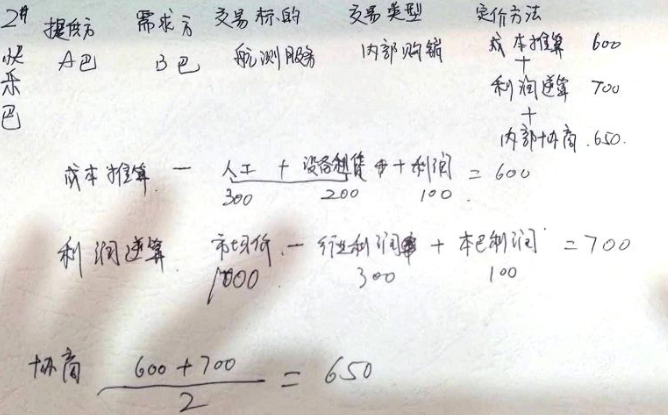 2月 提供方 需求方 交易标的 交易类型 定价方法
快乐巴 A巴 B巴 航测服务 内部购销 成本推算 600
+
利润逆算 700
+
内部协商 650.
成本推算 — 人工 + 设备 + 利润 = 600
300 200 100
利润逆算 市场价 — 行业利润率 + 本巴利润 = 700
1000 300 100
协商 600+700 = 650
2